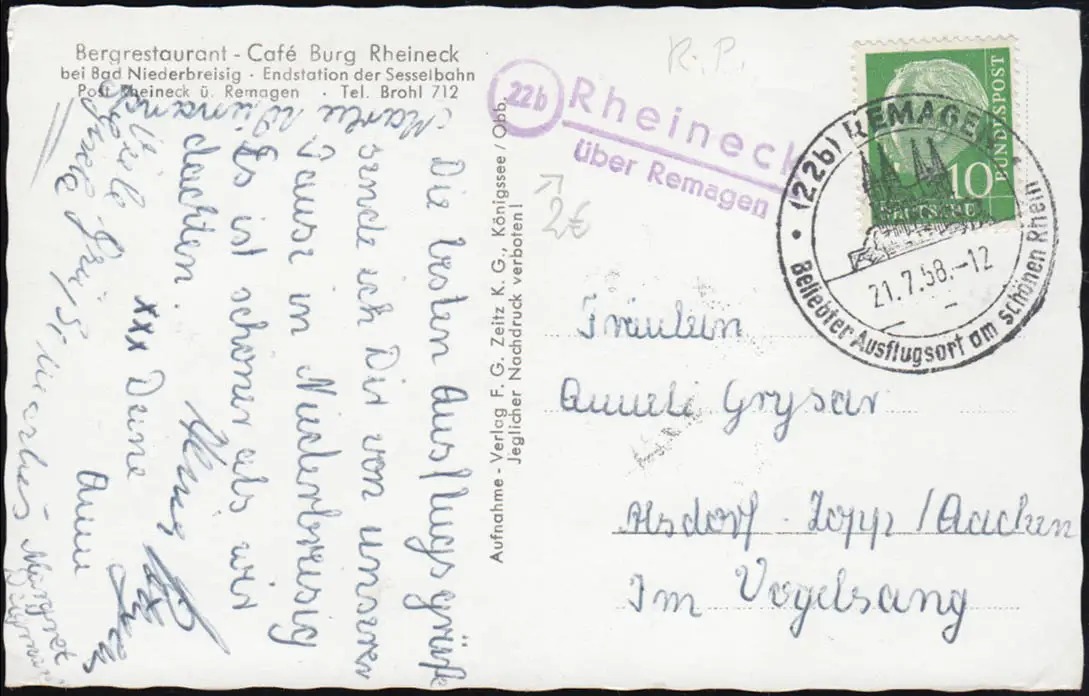 Bergrestaurant - Café Burg Rheineck
bei Bad Niederbreisig · Endstation der Sesselbahn
Post Rheineck ü. Remagen · Tel. Brohl 712
Die besten Ausflugsgrüße
sende ich Dir von unserer
Pause in Niederbreisig
Es ist schöner als wir
dachten.
xxx Deine
Anni
Viele
Marlies
Margret
Aufnahme - Verlag F. G. Zeitz K. G., Königssee / Obb.
Jeglicher Nachdruck verboten!
R. P.
2€
22b
Rheineck
über Remagen
BUNDESPOST
10
(22b) REMAGEN
21.7.58.-12
Beliebter Ausflugsort am schönen Rhein
Fräulein
Anneli Grysar
Alsdorf - Zopp / Aachen
Im Vogelsang